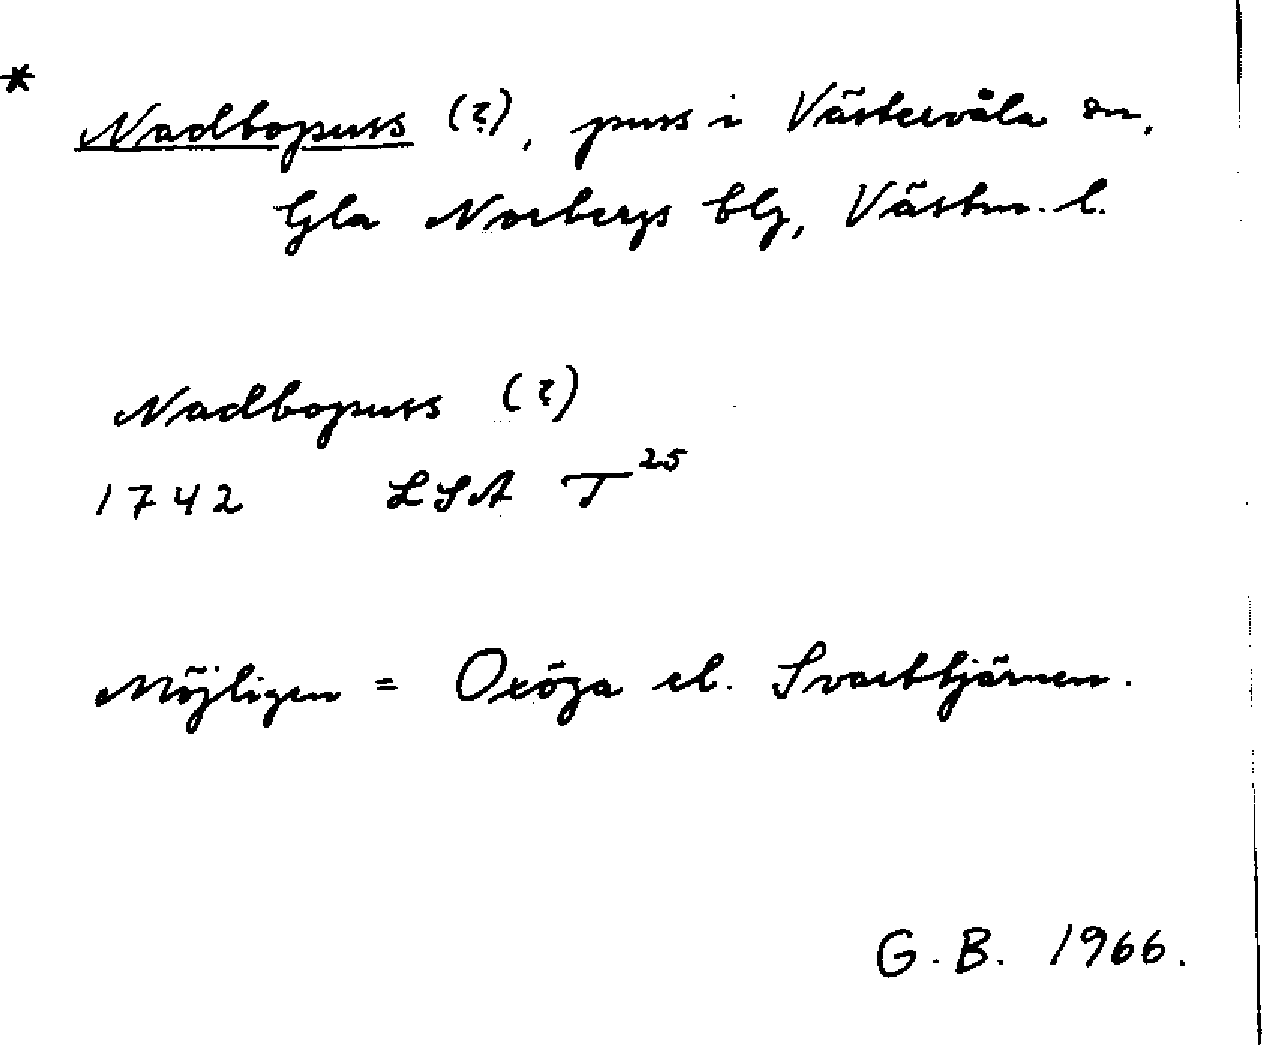 *
Nadbopuss (?), puss i Västervåla sn,
Gla Norbergs blg, Västm. l.
Nadbopuss (?)
1742 LSA T 25
Möjligen = Oxöga el. Svarttjärnen.
G. B. 1966.